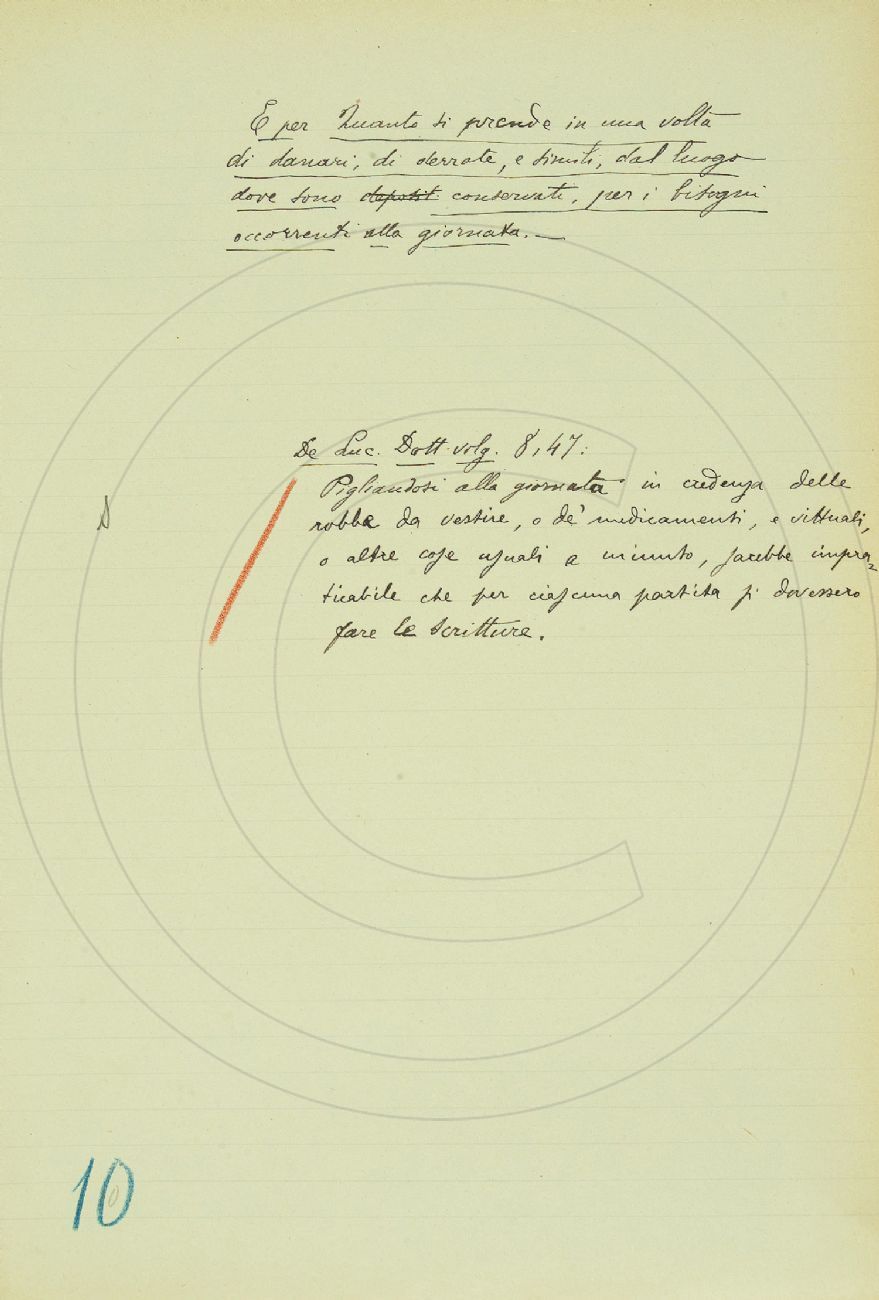 E per Quanto si prende in una volta
di danari, di derrate, e simili, dal luogo
dove sono deposit conservati, per i bisogni
occorrenti alla giornata. —
De Luc. Dott. volg. 8, 47:
Pigliandosi alla giornata in credenza delle
robbe da vestire, o de' medicamenti, e vittuali,
o altre cose usuali a minuto, sarebbe impra=
ticabile che per ciascuna partita si dovessero
fare le scritture.
10